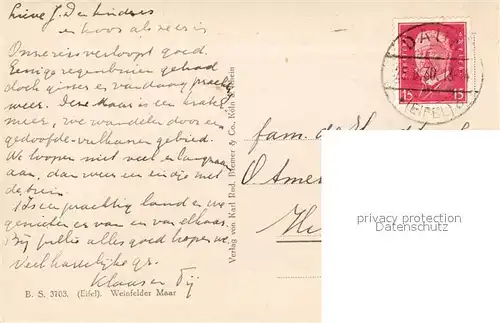 Lieve J. De kinders
en koos als reis
Onze reis verloopt goed.
Eenige regenbuien gehad
doch gister en vandaag prach
weer. Deze Maar is een krater
meer, we wandelen door een
gedoofde-vulkanen gebied.
We loopen niet veel en langzaam
aan, dan weer een eindje met
de trein.
't Is een prachtig land en we
genieten er van en van elkaar.
Bij jullie alles goed hopen we
Veel hartelijke gr.
Klaas en Tij
B. S. 3703. (Eifel). Weinfelder Maar
Verlag von Karl Rud. Bremer & Co. Köln a. Rhein
DAUN
30
(EIFEL)
15 15
fam. de
privacy protection
Datenschutz